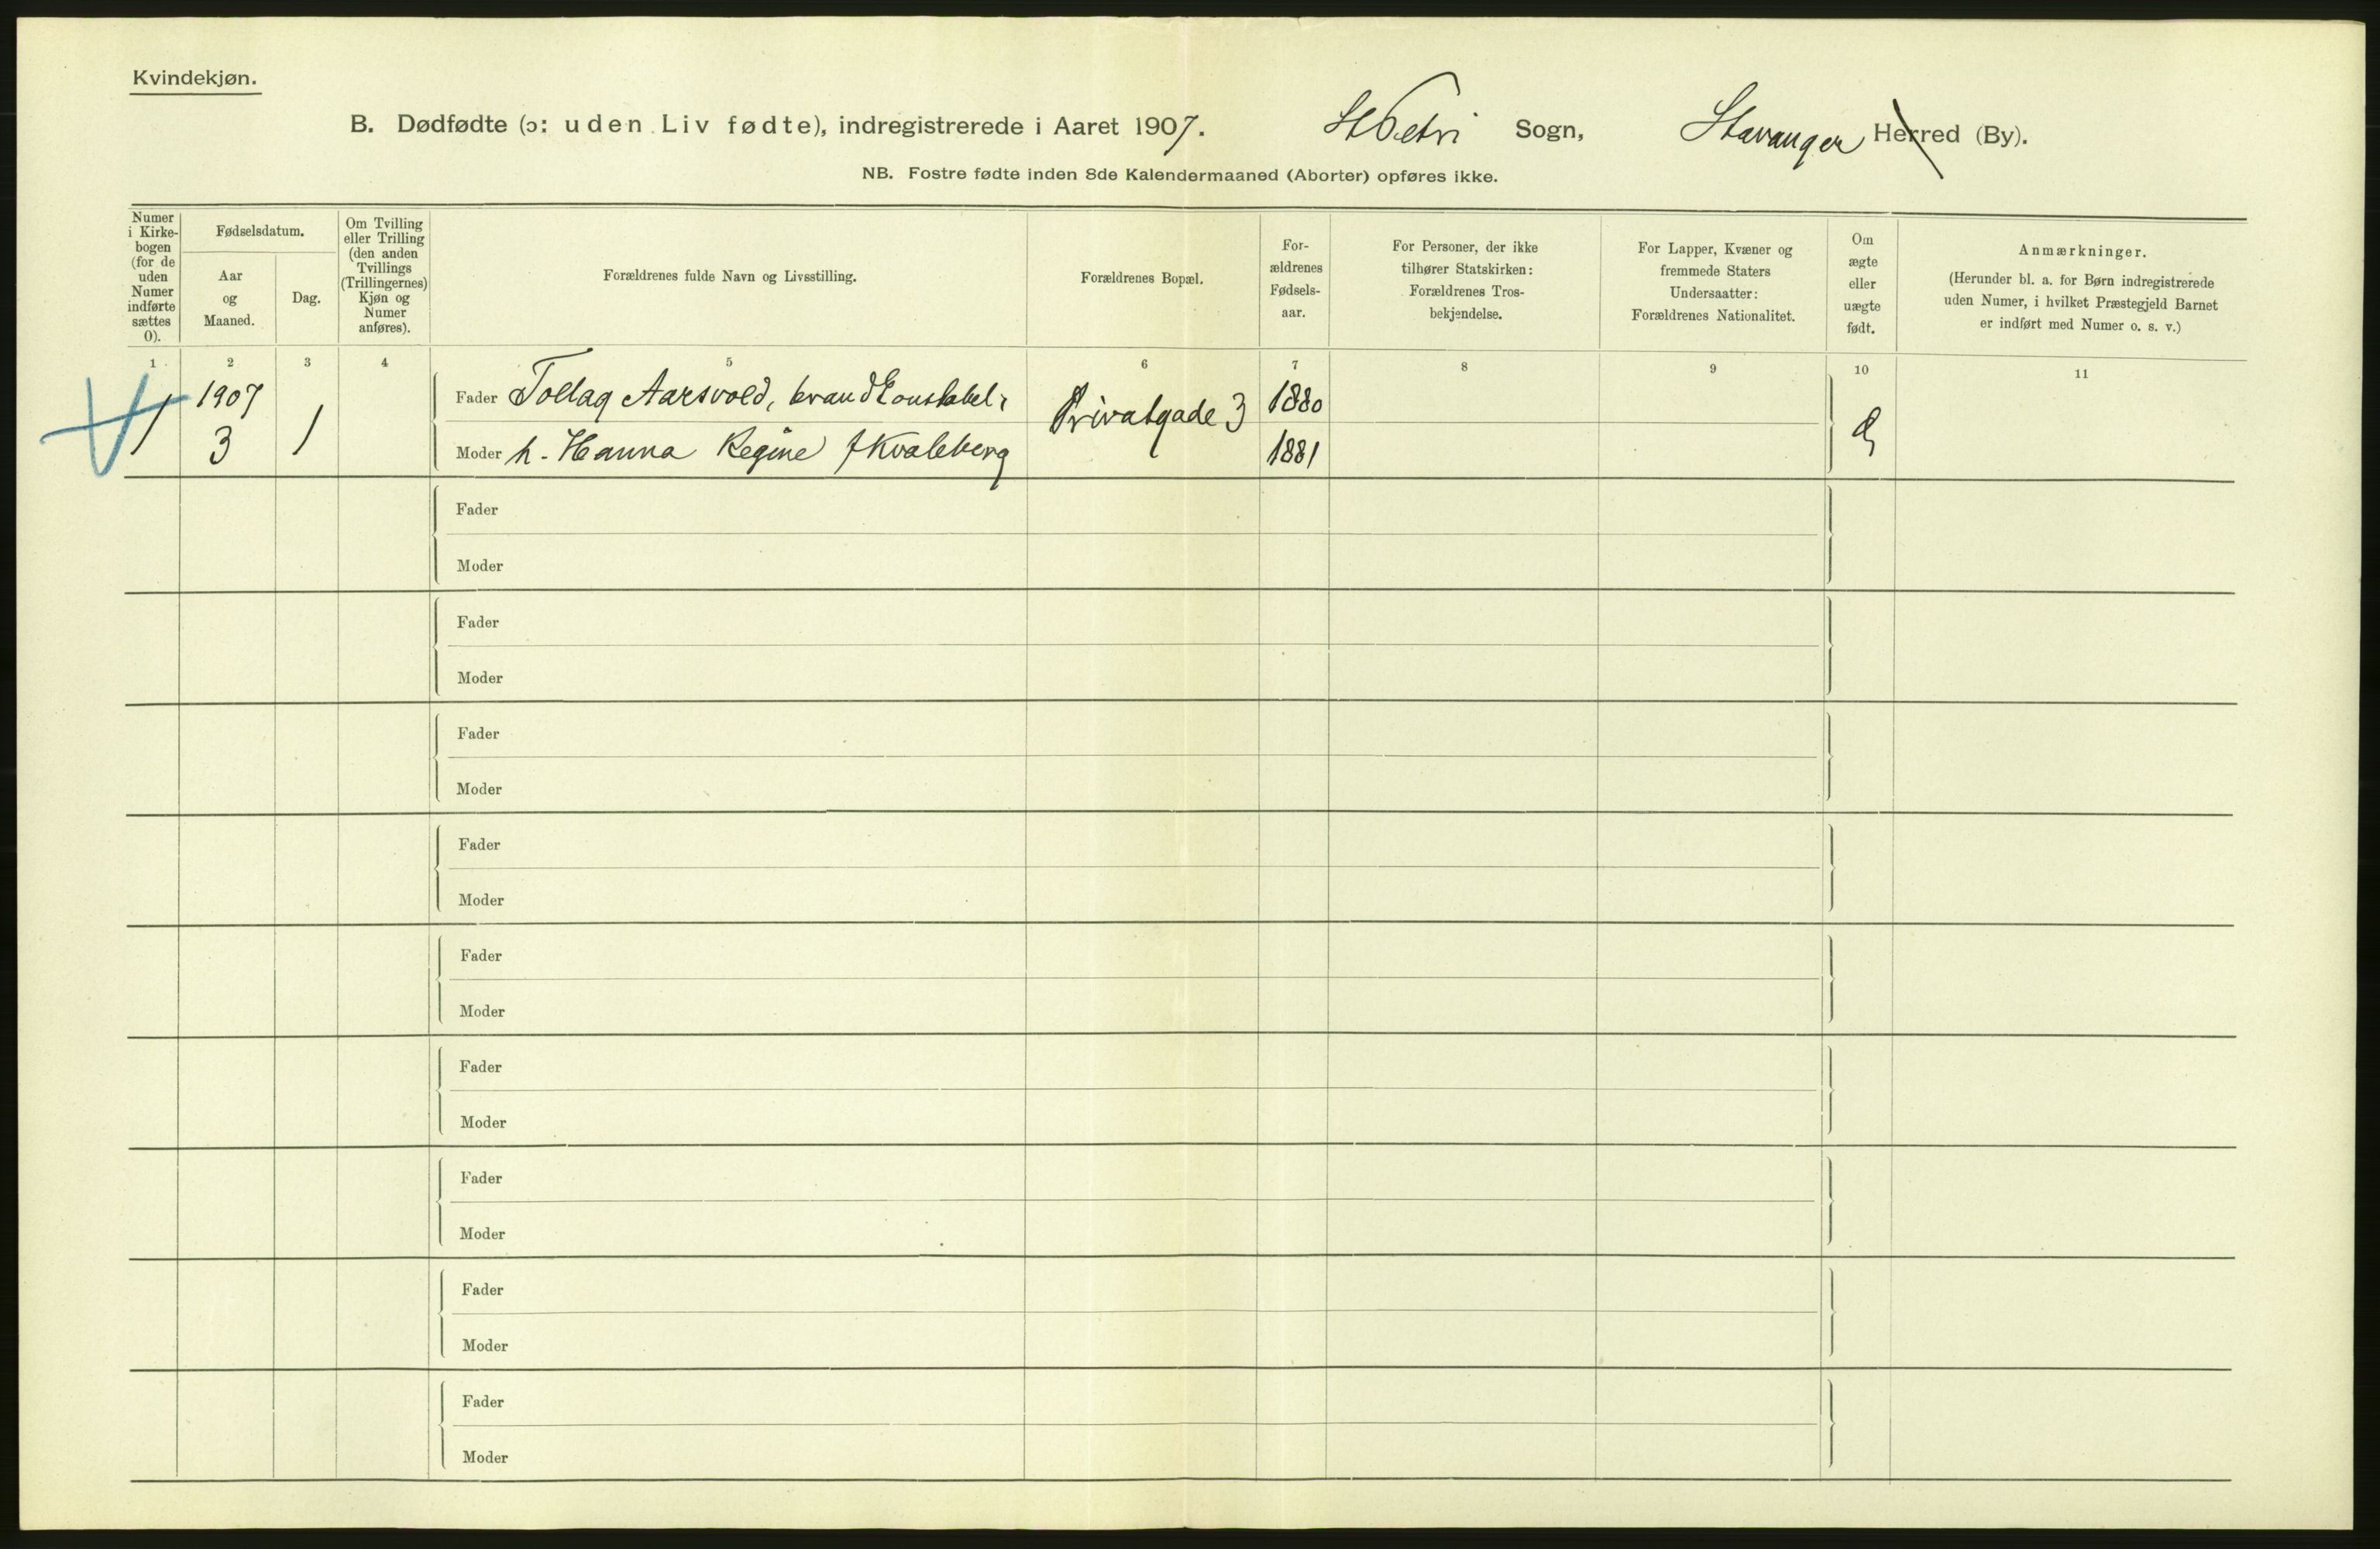 Kvindekjøn.
B. Dødfødte (ɔ: uden Liv fødte), indregistrerede i Aaret 1907. St Petri Sogn, Stavanger Herred (By).
NB. Fostre fødte inden 8de Kalendermaaned (Aborter) opføres ikke.
Numer i Kirke-bogen (for de uden Numer indførte sættes 0).
Fødselsdatum.
Aar og Maaned.
Dag.
Om Tvilling eller Trilling (den anden Tvillings (Trillingernes) Kjøn og Numer anføres).
Forældrenes fulde Navn og Livsstilling.
Forældrenes Bopæl.
For-ældrenes Fødsels-aar.
For Personer, der ikke tilhører Statskirken: Forældrenes Tros-bekjendelse.
For Lapper, Kvæner og fremmede Staters Undersaatter: Forældrenes Nationalitet.
Om ægte eller uægte født.
Anmærkninger.
(Herunder bl. a. for Børn indregistrerede uden Numer, i hvilket Præstegjeld Barnet er indført med Numer o. s. v.)
1 2 3 4 5 6 7 8 9 10 11
1 1907 3 1
Fader Tollag Aarsvold, brandkonstabel, Privatgade 3 1880
Moder h. Hanna Regine f Kvaleberg 1881
Fader
Moder
Fader
Moder
Fader
Moder
Fader
Moder
Fader
Moder
Fader
Moder
Fader
Moder
Fader
Moder
Fader
Moder